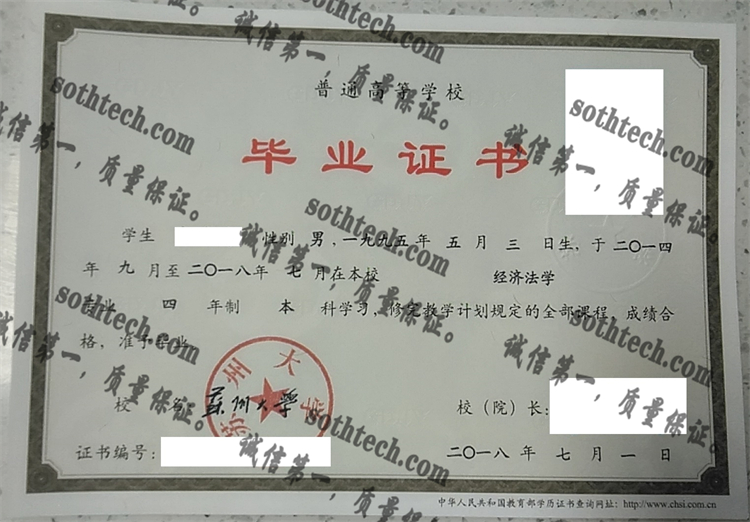 普通高等学校
毕业证书
学生 性别 男，一九九五年 五 月 三 日生，于二〇一四
年 九 月至二〇一八年 七 月在本校 经济法学
专业 四 年制 本 科学习，修完教学计划规定的全部课程，成绩合
格，准予毕业
校 名 苏州大学 校（院）长：
证书编号： 二〇一八年 七 月 一 日
中华人民共和国教育部学历证书查询网址：http://www.chsi.com.cn
苏州大学
sothtech.com
诚信第一，质量保证。
sothtech.com
诚信第一，质量保证。
sothtech.com
诚信第一，质量保证。
sothtech.com
诚信第一，质量保证。
sothtech.com
诚信第一，质量保证。
sothtech.com
诚信第一，质量保证。
sothtech.com
诚信第一，质量保证。
sothtech.com
诚信第一，质量保证。